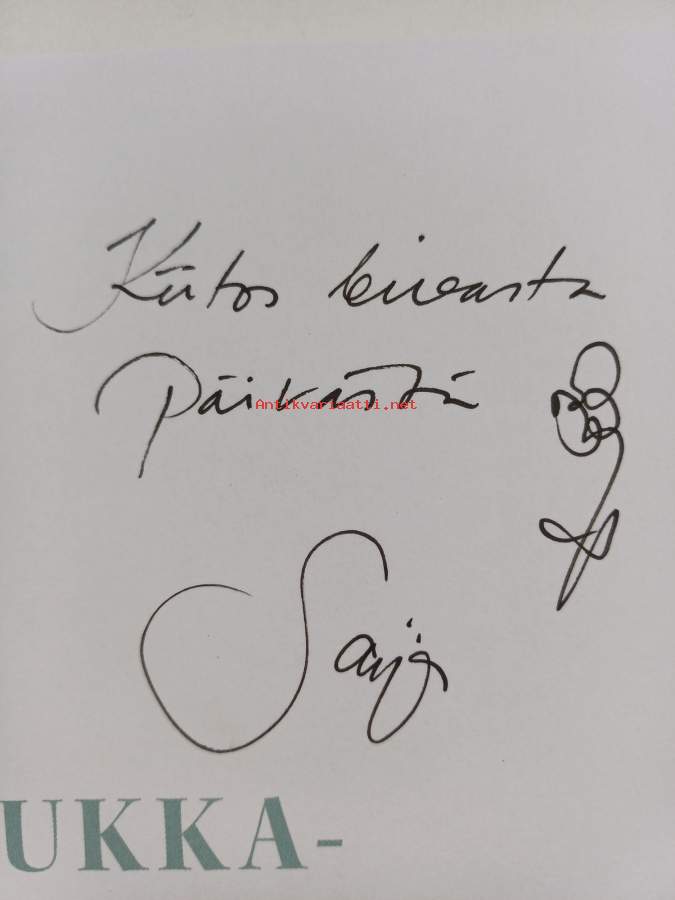 Kiitos kivasta
Päivästä
Antikvariaatti.net
Saija
UKKA-